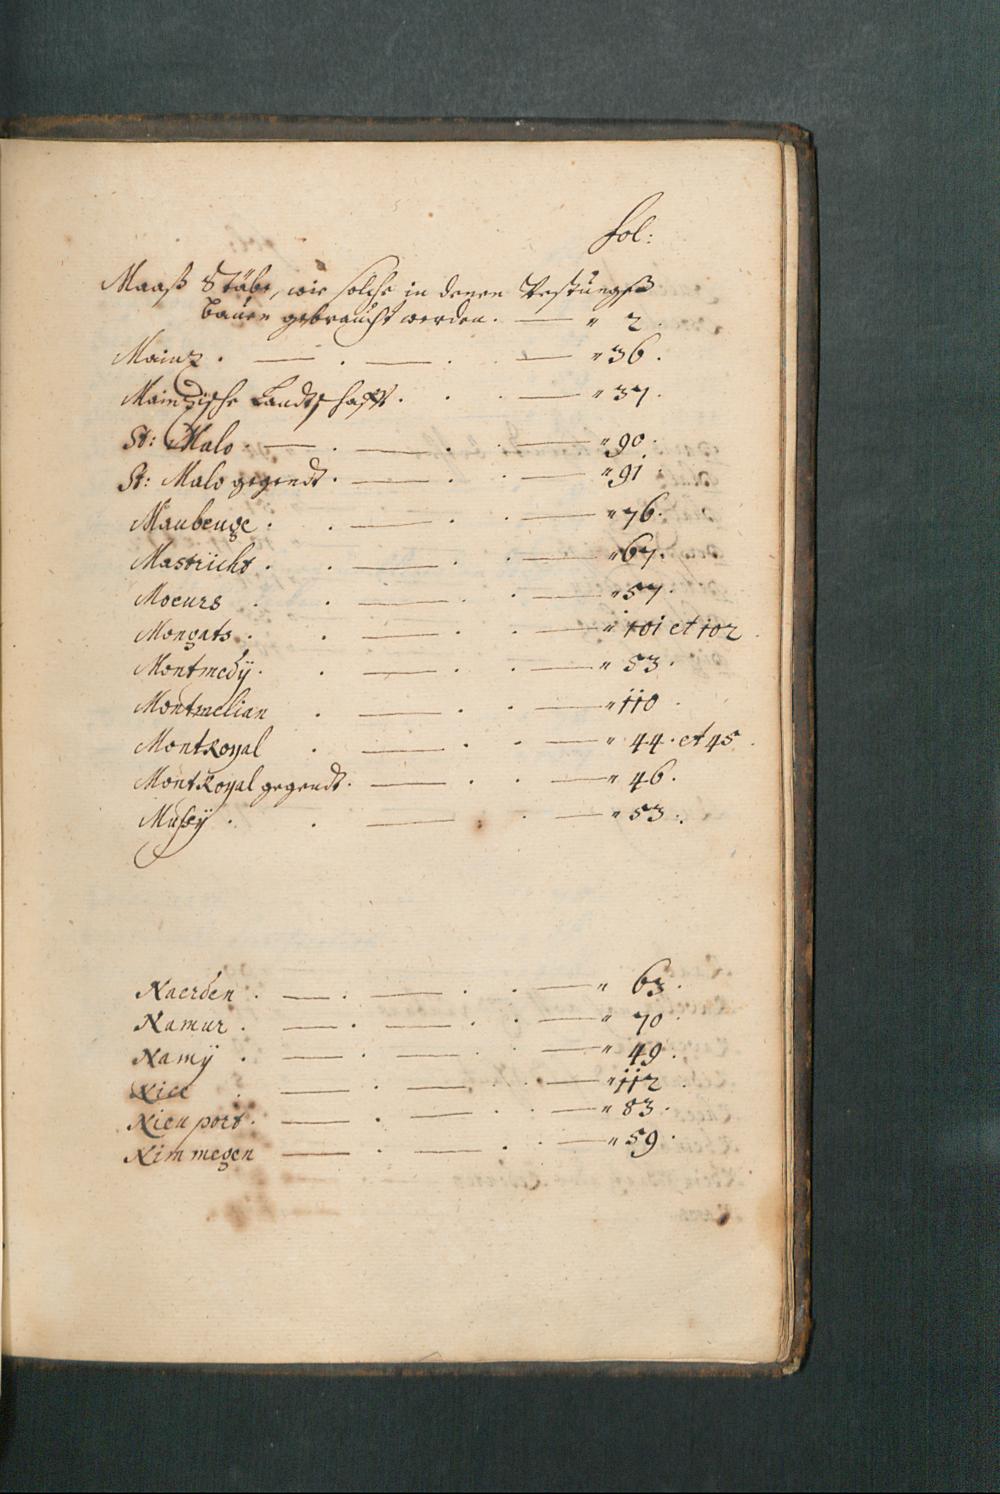 fol:
Maaß Stäbe, wie solche in denen Vestungs
Bauen gebraucht werden. — " 2.
Mainz. — . — . — " 36.
Mainzische Landtschafft. . . — " 37.
St: Malo. — . — . — " 90.
St: Malo gegendt. — . — " 91.
Maubeuge. . — . . — " 76.
Mastricht. . — . . — " 67.
Moeurs . . — . . — " 57.
Mongats. . — . . — " 101 et 102.
Montmedÿ. . — . . — " 53.
Montmelian . — . . — " 110.
MontRoyal . — . . — " 44. et 45.
MontRoyal gegendt. — . . — " 46.
Mussÿ. . — . . — " 53.
Naerden. — . — . . — " 63.
Namur. — . — . . — " 70.
Namÿ. — . — . — " 49.
Nice . — . — . — " 112.
Nieuport. — . — . . — " 83.
Nimmegen — . — . . — " 59.